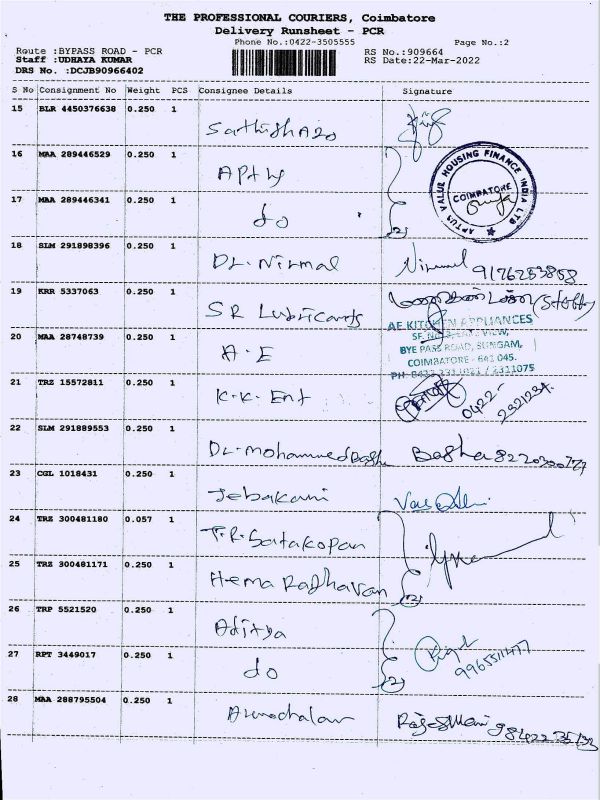 THE PROFESSIONAL COURIERS, Coimbatore
Delivery Runsheet - PCR
Phone No.:0422-3505555 Page No.:2
Route :BYPASS ROAD - PCR RS No.:909664
Staff :UDHAYA KUMAR RS Date:22-Mar-2022
DRS No. :DCJB90966402
S No Consignment No Weight PCS Consignee Details Signature
15 BLR 4450376638 0.250 1
16 MAA 289446529 0.250 1
APTUS VALUE HOUSING FINANCE INDIA LTD
COIMBATORE
17 MAA 289446341 0.250 1
do (2)
18 SLM 291898396 0.250 1
Dr. Nirmal Nirmal 9176253858
19 KRR 5337063 0.250 1
SR Lubricants
20 MAA 28748739 0.250 1
A.E
AE KITCHEN APPLIANCES
BYE PASS ROAD, SUNGAM,
COIMBATORE - 641 045.
21 TRZ 15572811 0.250 1
K.K. Ent 0422-
2321234
22 SLM 291889553 0.250 1
Dr. Mohammed Basha Basha
23 CGL 1018431 0.250 1
Jebakani
24 TRZ 300481180 0.057 1
T.R. Satakopan
25 TRZ 300481171 0.250 1
Hema Raghavan (2)
26 TRP 5521520 0.250 1
Aditya
27 RPT 3449017 0.250 1
do (2)
28 MAA 288795504 0.250 1
Arunachalam